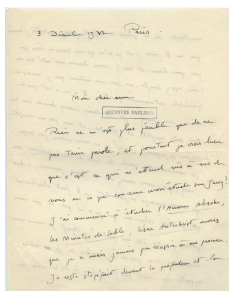 3 Décembre 1932 Paris.
Mon cher ami
ARCHIVES PAULHAN
Rien ne m'est plus pénible que de ne
pas tenir parole, et pourtant je crois bien
que c'est ce qui m'attend vis à vis de
vous en ce qui concerne mon étude sur Jarry!
J'ai commencé à étudier l'Amour absolu,
les Minutes de Sable, César Antechrist, mais
que je n'aurai jamais pu
Je reste stupéfait devant la et la